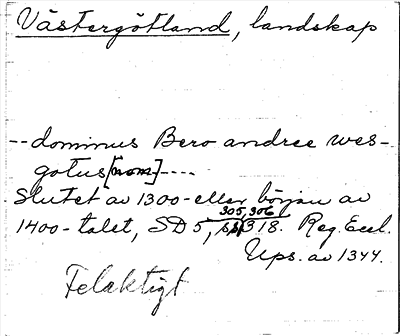 Västergötland, landskap
-- dominus Bero andree wes-
gotus [nom] ----
Slutet av 1300- eller början av
305, 306
1400-talet, SD 5, s 318. Reg. Eccl.
Ups. av 1344.
Felaktigt